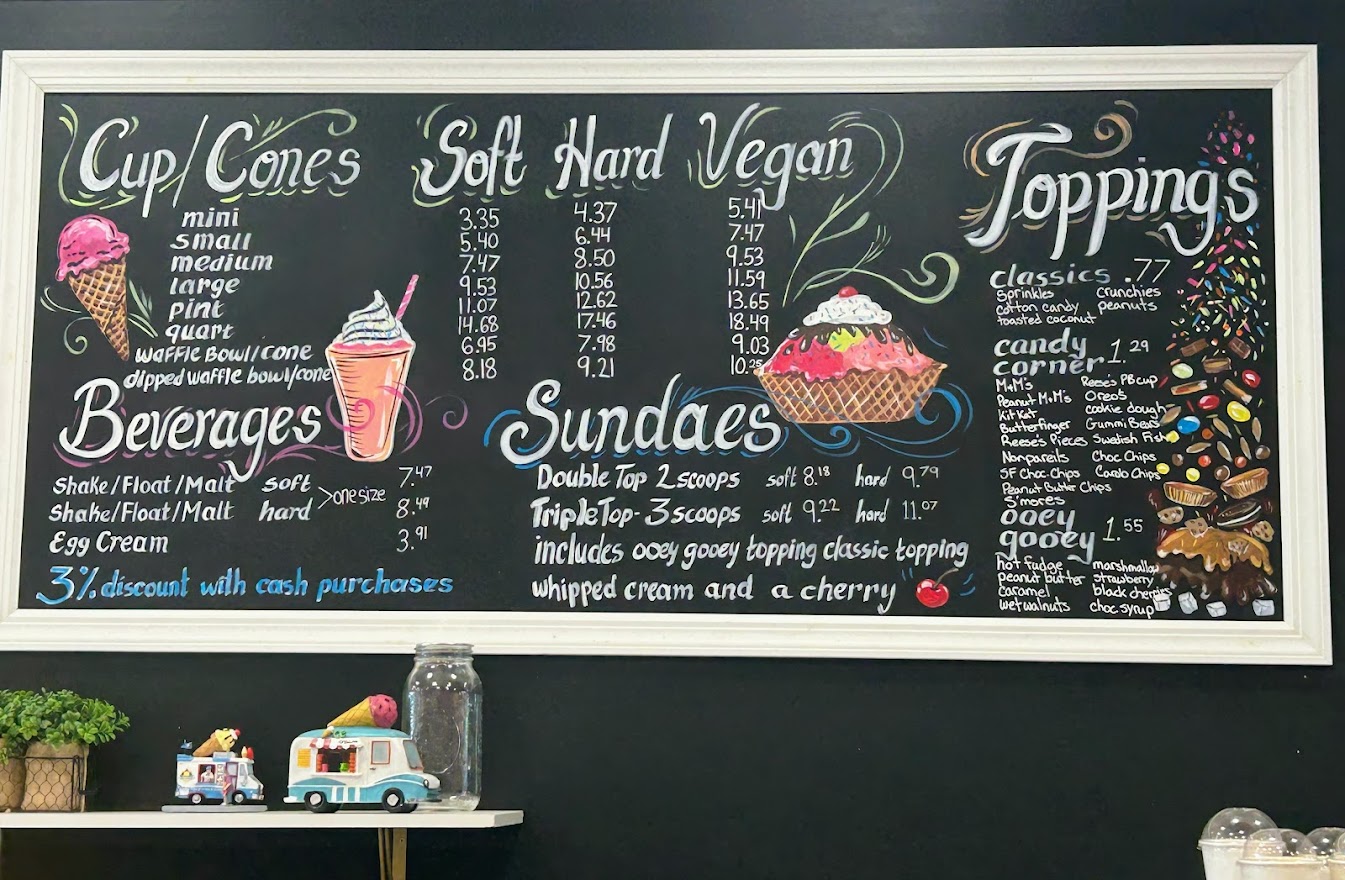 Cup/Cones Soft Hard Vegan
mini 3.35 4.37 5.41
small 5.40 6.44 7.47
medium 7.47 8.50 9.53
large 9.53 10.56 11.59
pint 11.07 12.62 13.65
quart 14.68 17.46 18.49
waffle Bowl/cone 6.95 7.98 9.03
dipped waffle bowl/cone 8.18 9.21 10.25
Beverages
Shake/Float/Malt soft 7.47
>one size
Shake/Float/Malt hard 8.49
Egg Cream 3.91
3% discount with cash purchases
Sundaes
Double Top 2 scoops soft 8.18 hard 9.79
Triple Top- 3 scoops soft 9.22 hard 11.07
includes ooey gooey topping classic topping
whipped cream and a cherry
Toppings
classics .77
Sprinkles crunchies
cotton candy peanuts
toasted coconut
candy
corner 1.29
M+M's Reese's PB cup
Peanut M+M's Oreos
Kit Kat cookie dough
Butterfinger Gummi Bears
Reese's Pieces Swedish Fish
Nonpareils Choc Chips
SF Choc. Chips Carob Chips
Peanut Butter Chips
S'mores
ooey
gooey 1.55
hot fudge marshmallow
peanut butter strawberry
caramel black cherries
wet walnuts choc. syrup